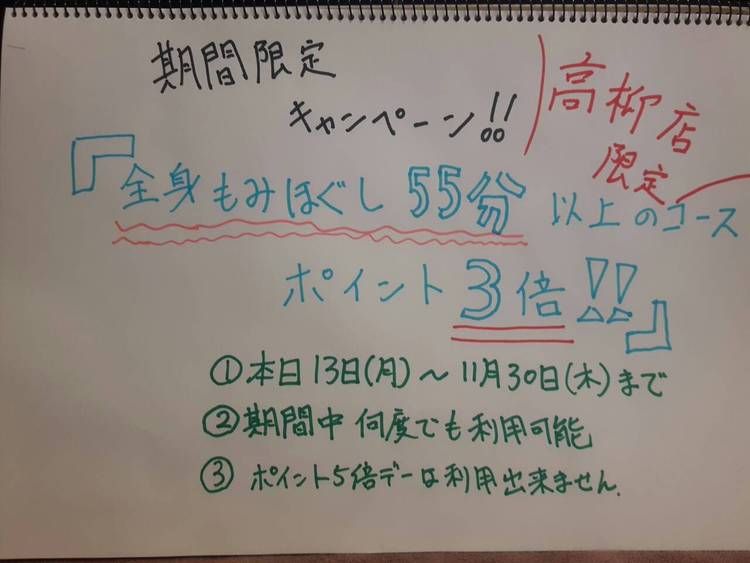 期間限定
キャンペーン!!
高柳店
限定
『全身もみほぐし55分以上のコース
ポイント3倍!!』
①本日13日(月)～11月30日(木)まで
②期間中何度でも利用可能
③ポイント5倍デーは利用出来ません.